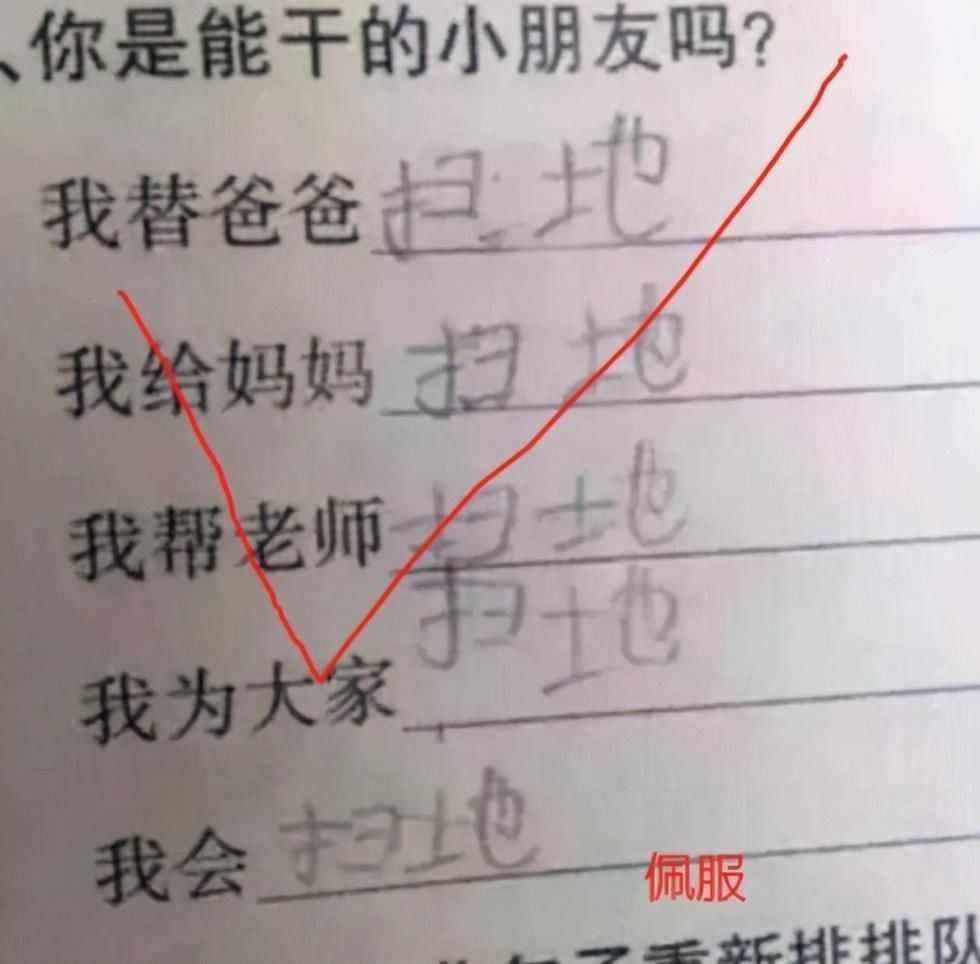 、你是能干的小朋友吗?
我替爸爸扫地
我给妈妈扫地
我帮老师扫地
我为大家扫地
我会扫地
佩服
子重新排排队